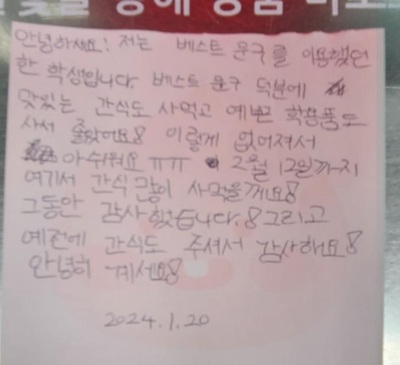 안녕하세요! 저는 베스트 문구를 이용했던
한 학생입니다. 베스트 문구 덕분에
맛있는 간식도 사먹고 예쁜 학용품도
사서 좋았어요! 이렇게 없어져서
아쉬워요 ㅠㅠ 2월 12월까지
여기서 간식 많이 사먹을께요!
그동안 감사했습니다.! 그리고
예전에 간식도 주셔서 감사해요!
안녕히 계세요!
2024.1.20